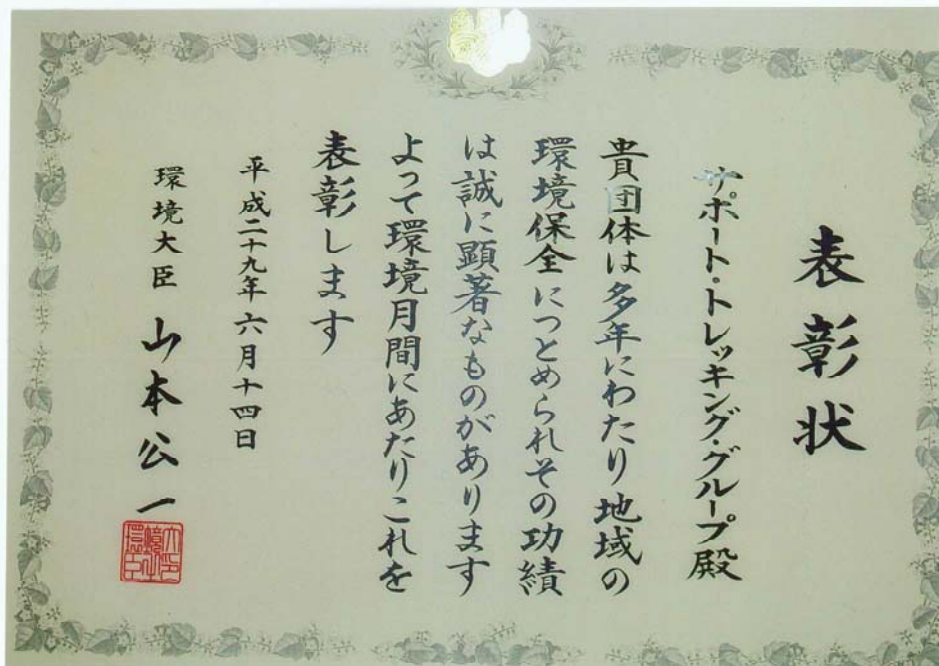 表彰状
サポート・トレッキング・グループ殿
貴団体は多年にわたり地域の
環境保全につとめられその功績
は誠に顕著なものがあります
よって環境月間にあたりこれを
表彰します
平成二十九年六月十四日
環境大臣 山本公一
環境大臣之印